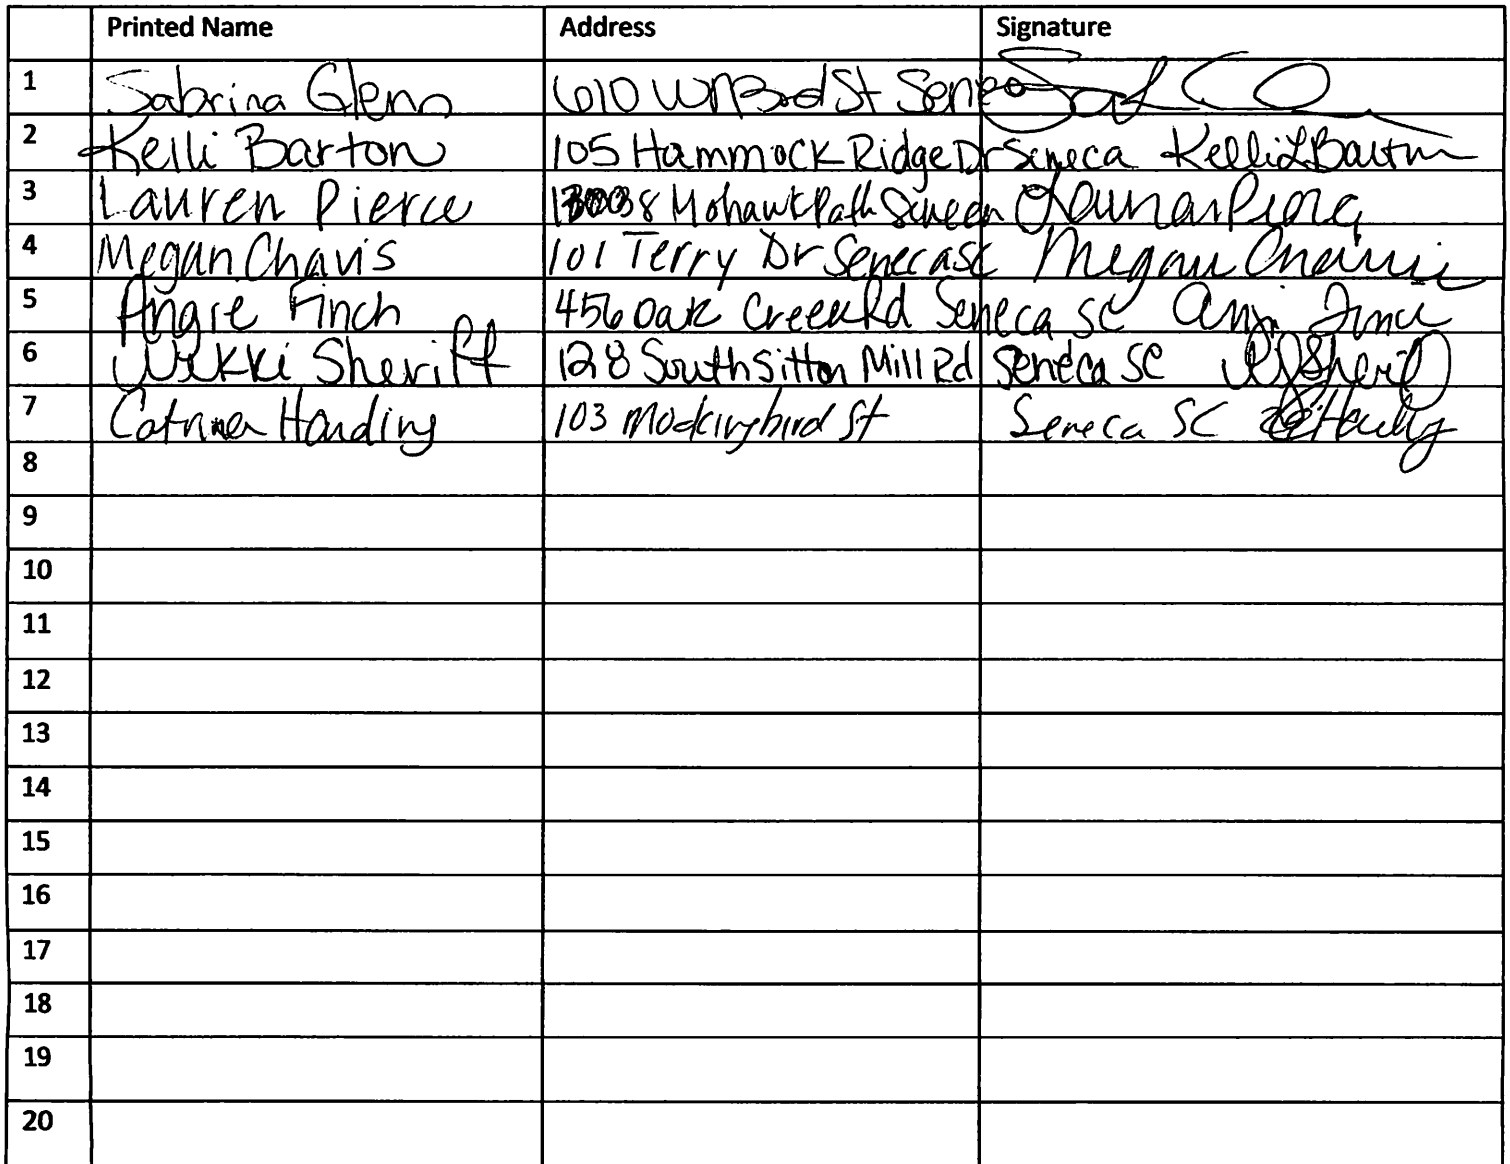 Printed Name Address Signature
1 Sabrina Glenn 610 W N 3rd St Seneca
2 Kelli Barton 105 Hammock Ridge Dr Seneca Kelli L Barton
3 Lauren Pierce Mohawk Path Lauren Pierce
4 Megan Chavis 101 Terry Dr Seneca SC Megan Chavis
5 Angie Finch 456 Oak Creek Rd Seneca SC Angi Finch
6 Wekki Sheriff 128 South Sitton Mill Rd Seneca SC
7 Catrina Harding 103 Mockingbird St Seneca SC
8
9
10
11
12
13
14
15
16
17
18
19
20